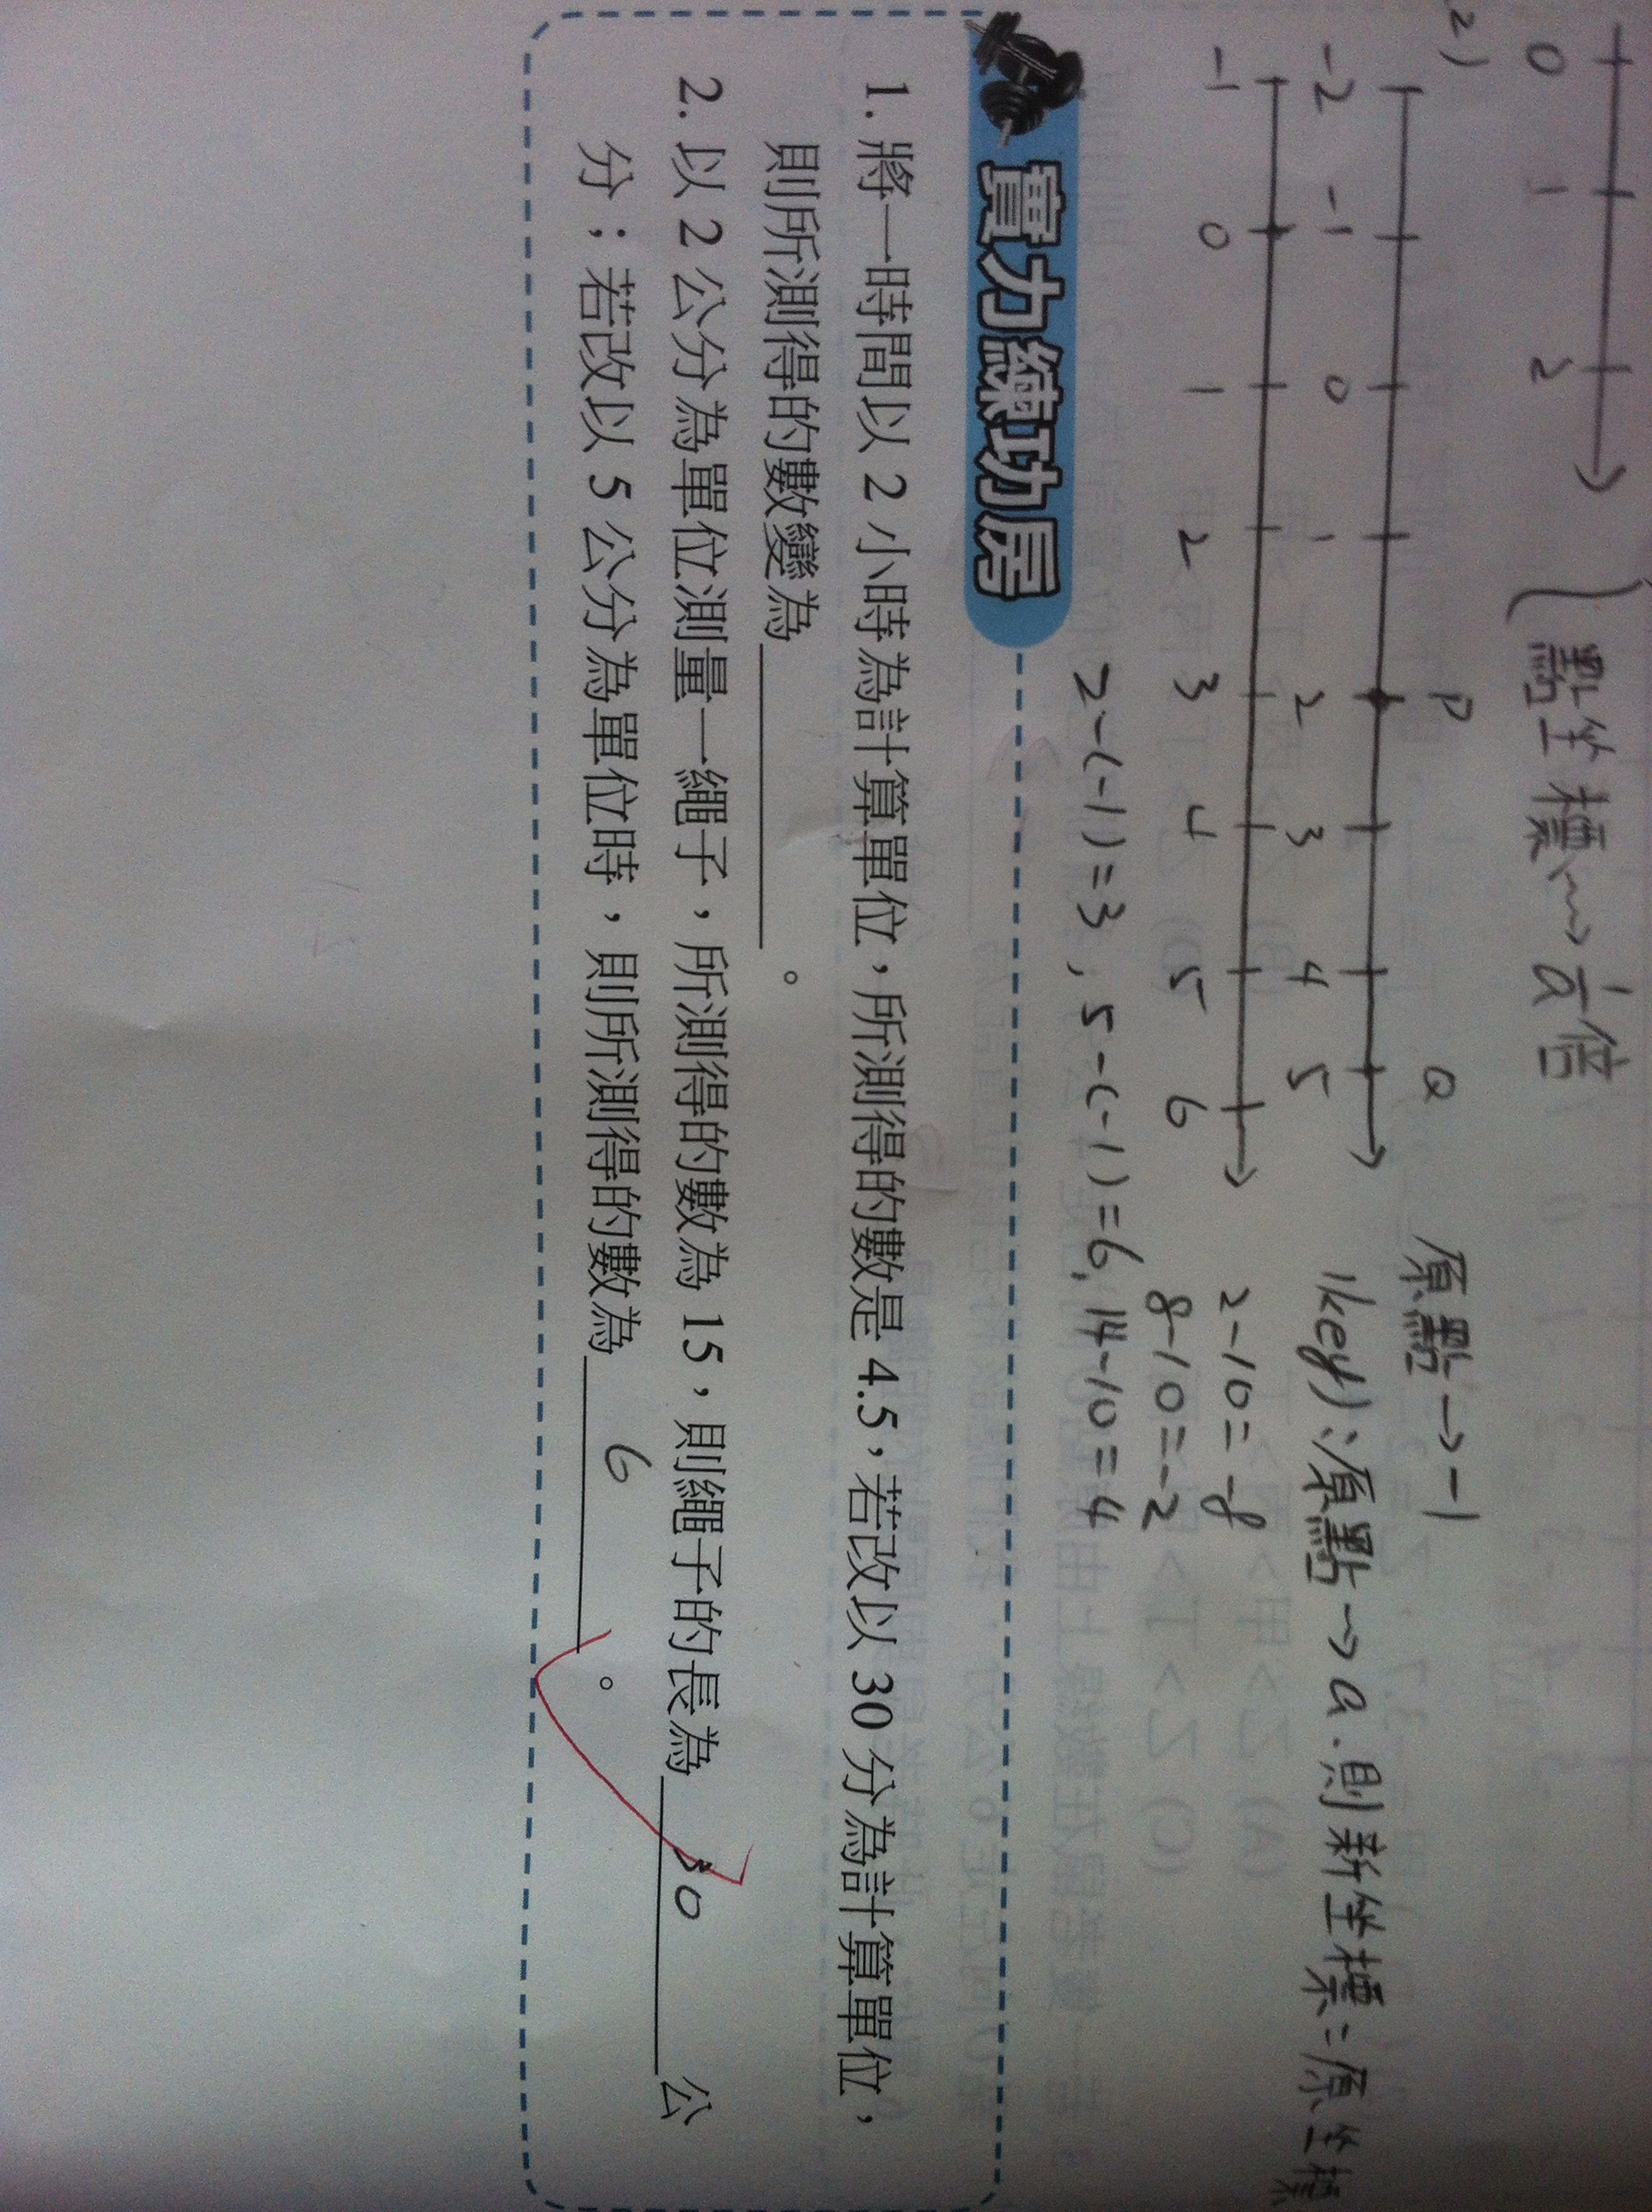 0 1 2
{點坐標→1/a倍
2)
P Q
-2 -1 0 1 2 3 4 5
-1 0 1 2 3 4 5 6
原點→-1
(key):原點→a.則新坐標=原坐標
2-10=-8
8-10=-2
2-(-1)=3, 5-(-1)=6, 14-10=4
實力練功房
1. 將一時間以 2 小時為計算單位,所測得的數是 4.5,若改以 30 分為計算單位,
則所測得的數變為________。
2. 以 2 公分為單位測量一繩子,所測得的數為 15,則繩子的長為 30 公
分;若改以 5 公分為單位時,則所測得的數為 6 。